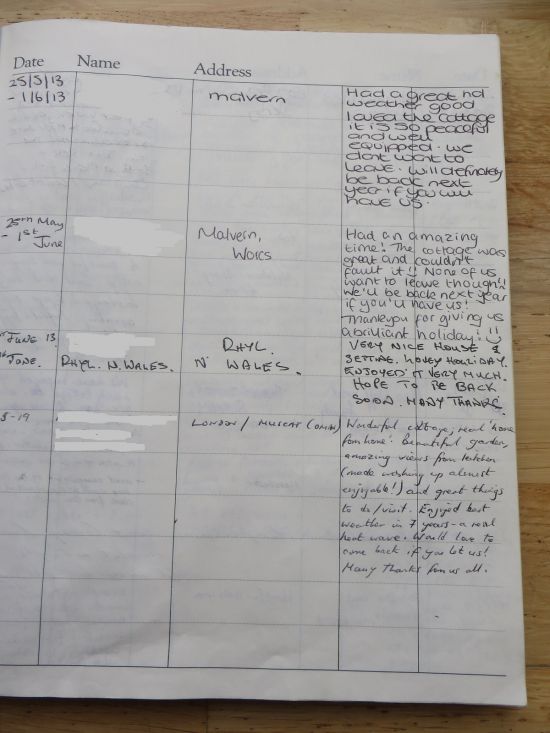 Date Name Address
25/5/13
- 1/6/13
malvern
Had a great hol
weather good
loved the cottage
it is so peaceful
and well
equipped. we
dont want to
leave. will definately
be back next
year if you will
have us.
25th May
- 1st
June
Malvern,
Worcs
Had an amazing
time! The cottage was
great and couldn't
fault it!! None of us
want to leave though!!
We'll be back next year
if you'll have us!
Thankyou for giving us
a brilliant holiday!
JUNE 13
JUNE.
RHYL. N. WALES.
RHYL.
N WALES.
VERY NICE HOUSE &
SETTING. LOVELY HOLIDAY.
ENJOYED IT VERY MUCH.
HOPE TO BE BACK
SOON. MANY THANKS.
8-19
LONDON / MUSCAT (OMAN)
Wonderful cottage, real 'home
from home'. Beautiful garden,
amazing views from kitchen
(made washing up almost
enjoyable!) and great things
to do/visit. Enjoyed best
weather in 7 years - a real
heat wave. Would love to
come back if you let us!
Many Thanks from us all.